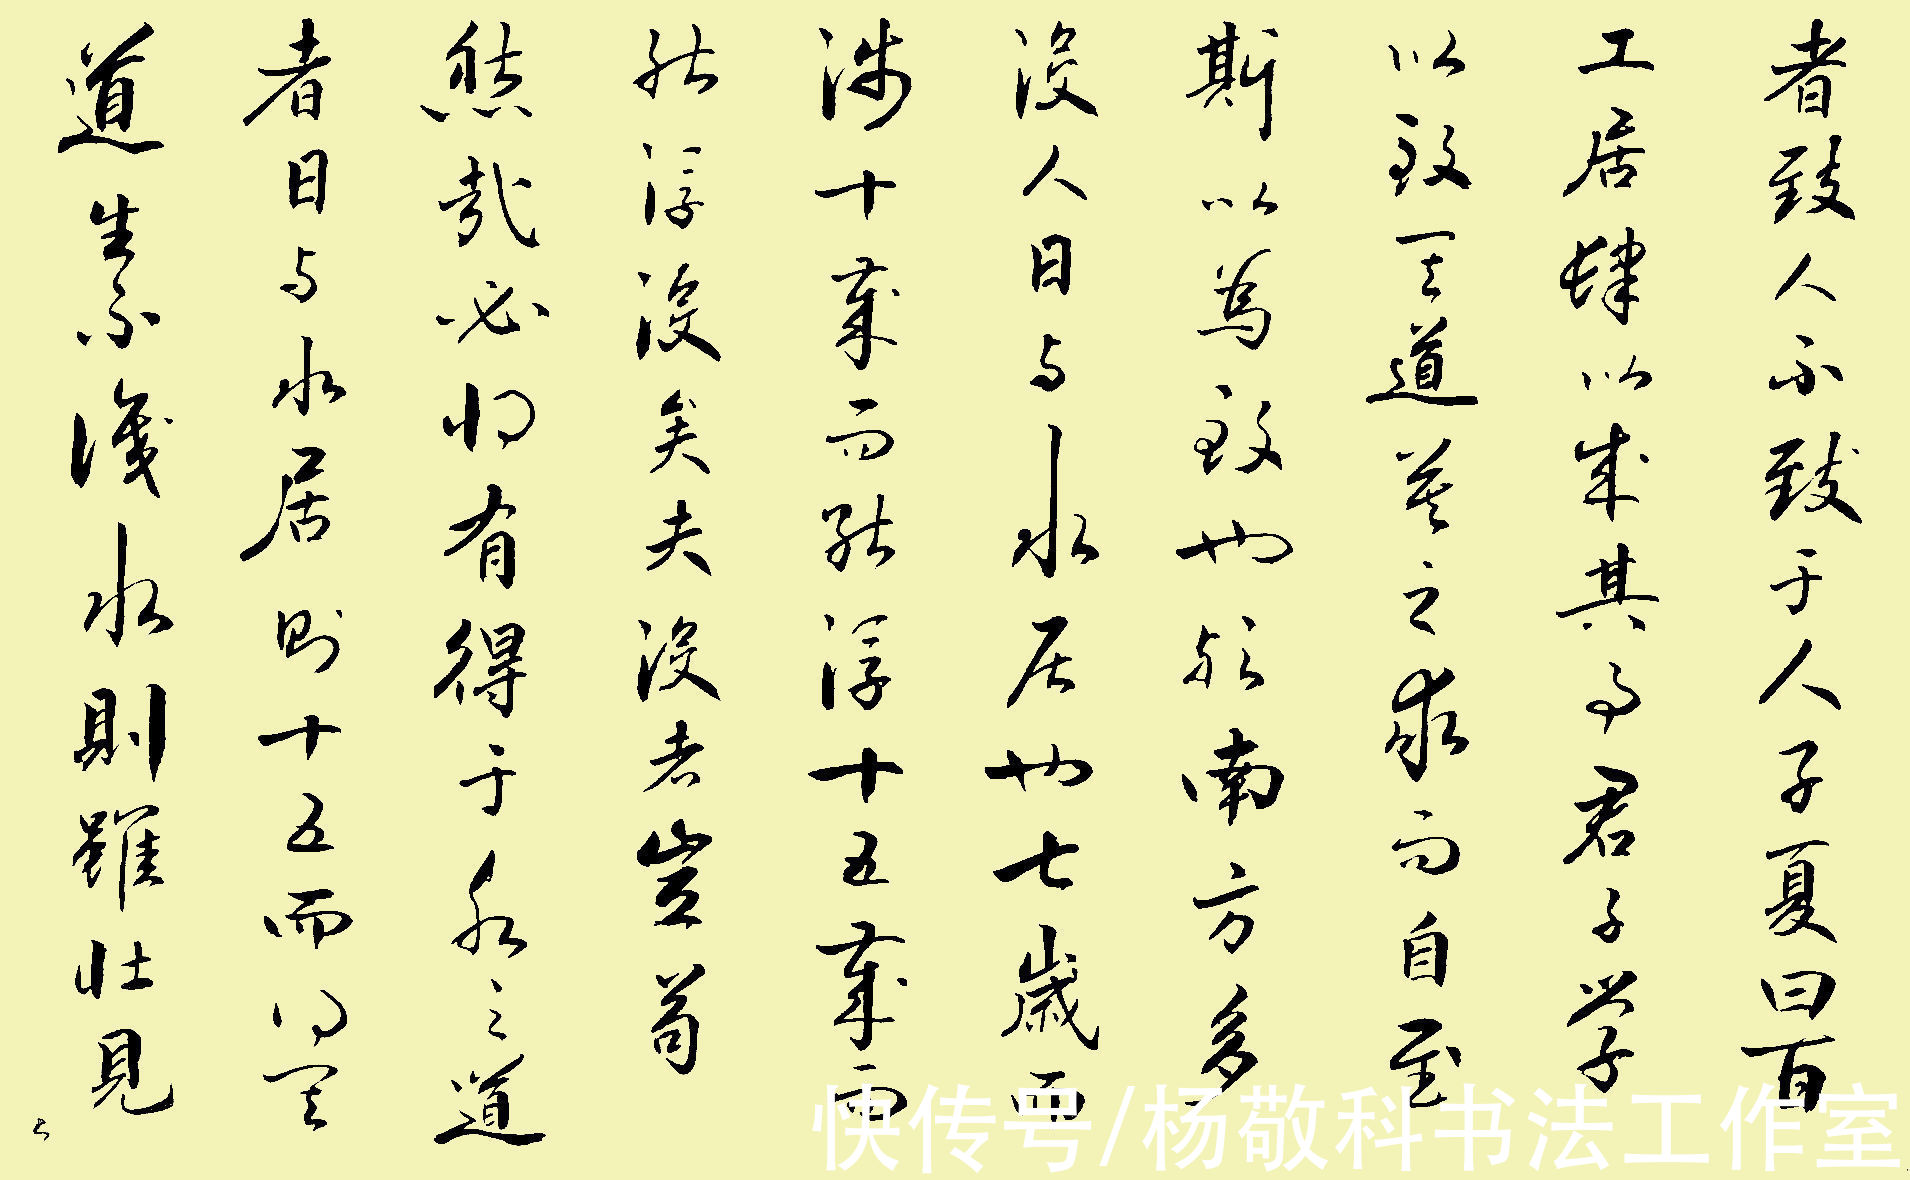 者致人不致于人子夏曰百
工居肆以成其事君子学
以致其道莫之求而自至
斯以为致也欤南方多
没人日与水居也七岁而
涉十岁而能浮十五岁而
能浮没矣夫没者岂苟
然哉必将有得于水之道
者日与水居则十五而得其
道生不识水则虽壮见
快传号/杨敬科书法工作室